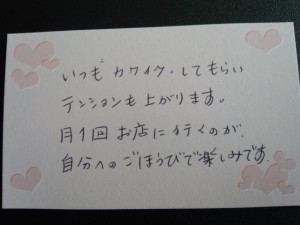 いつも カワイク、してもらい
テンションも上がります。
月1回 お店に行くのが、
自分へのごほうびで楽しみです.